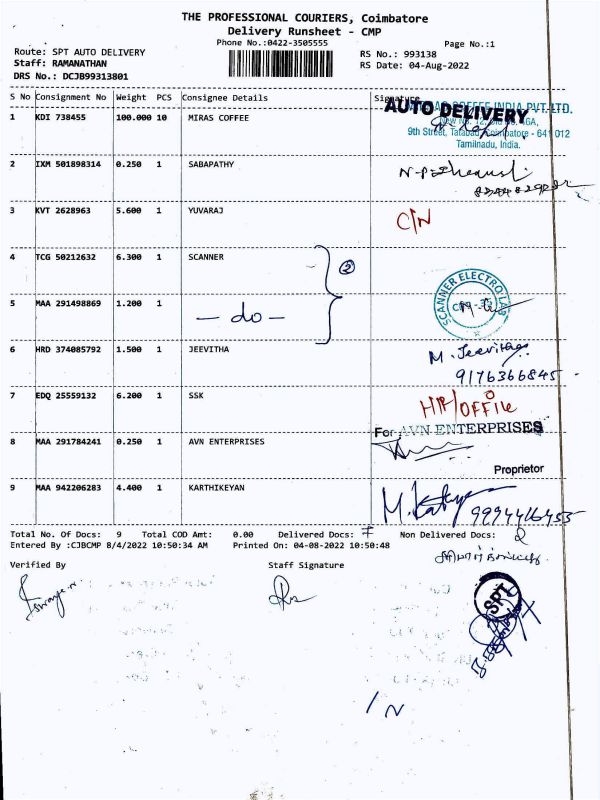 THE PROFESSIONAL COURIERS, Coimbatore
Delivery Runsheet - CMP
Phone No.:0422-3505555
Page No.:1
Route: SPT AUTO DELIVERY
Staff: RAMANATHAN
DRS No.: DCJB99313801
RS No.: 993138
RS Date: 04-Aug-2022
S No Consignment No Weight PCS Consignee Details Signature
AUTO DELIVERY
COFFEE INDIA PVT.LTD.
9th Street, Tatabad, Coimbatore - 641 012
Tamilnadu, India.
1 KDI 738455 100.000 10 MIRAS COFFEE
2 IXM 501898314 0.250 1 SABAPATHY
3 KVT 2628963 5.600 1 YUVARAJ C/N
4 TCG 50212632 6.300 1 SCANNER 2
SCANNER ELECTRO LAB
5 MAA 291498869 1.200 1 - do -
6 HRD 374085792 1.500 1 JEEVITHA M. Jeevitha
9176366845
7 EDQ 25559132 6.200 1 SSK H/OFFile
For AVN ENTERPRISES
8 MAA 291784241 0.250 1 AVN ENTERPRISES
Proprietor
9 MAA 942206283 4.400 1 KARTHIKEYAN
9994416455
Total No. Of Docs: 9 Total COD Amt: 0.00 Delivered Docs: 7 Non Delivered Docs: 2
Entered By :CJBCMP 8/4/2022 10:50:34 AM Printed On: 04-08-2022 10:50:48
Verified By Staff Signature
SPT
/ N